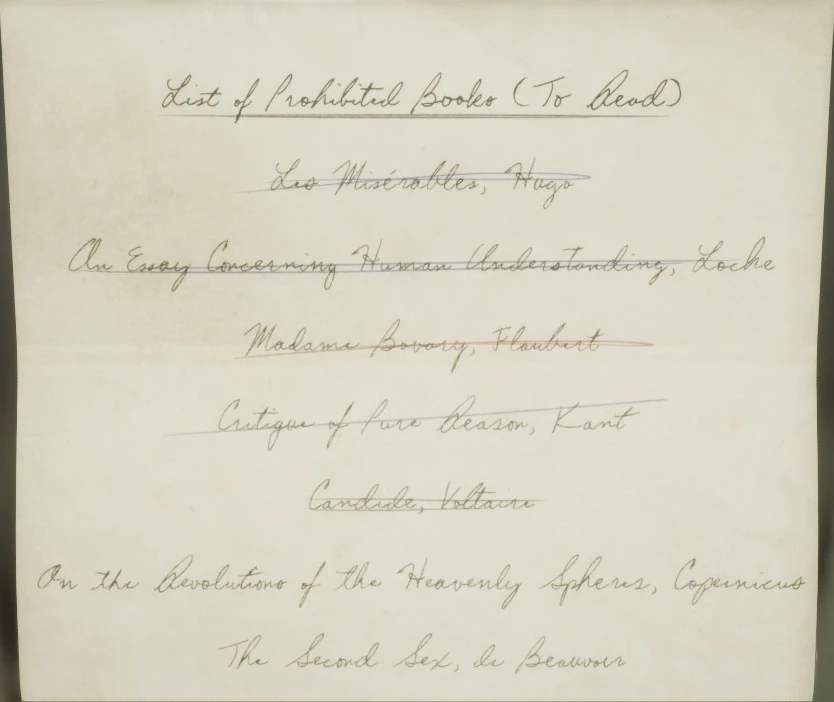 List of Prohibited Books (To Read)
Les Misérables, Hugo
An Essay Concerning Human Understanding, Locke
Madame Bovary, Flaubert
Critique of Pure Reason, Kant
Candide, Voltaire
On the Revolutions of the Heavenly Spheres, Copernicus
The Second Sex, de Beauvoir